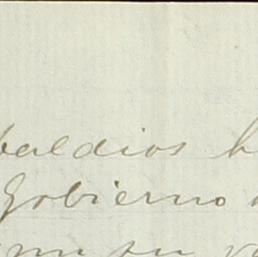 baldios h
Gobierno
su